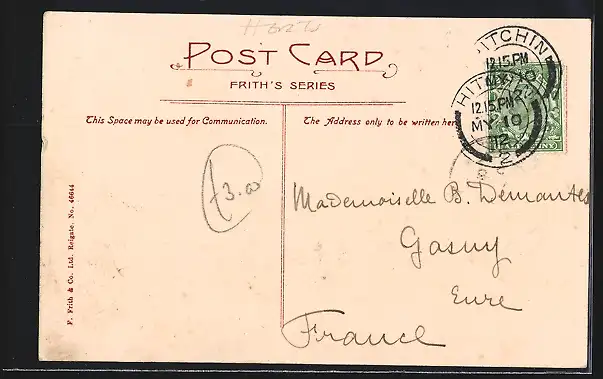 POST CARD
FRITH'S SERIES
This Space may be used for Communication.
The Address only to be written here
HITCHIN
12.15.PM
MY 10
HITCHIN
12.15.PM
MY 10
12
2
£3.00
Mademoiselle B. Démantes
Gasny
Eure
France
F. Frith & Co. Ltd. Reigate. No. 46644